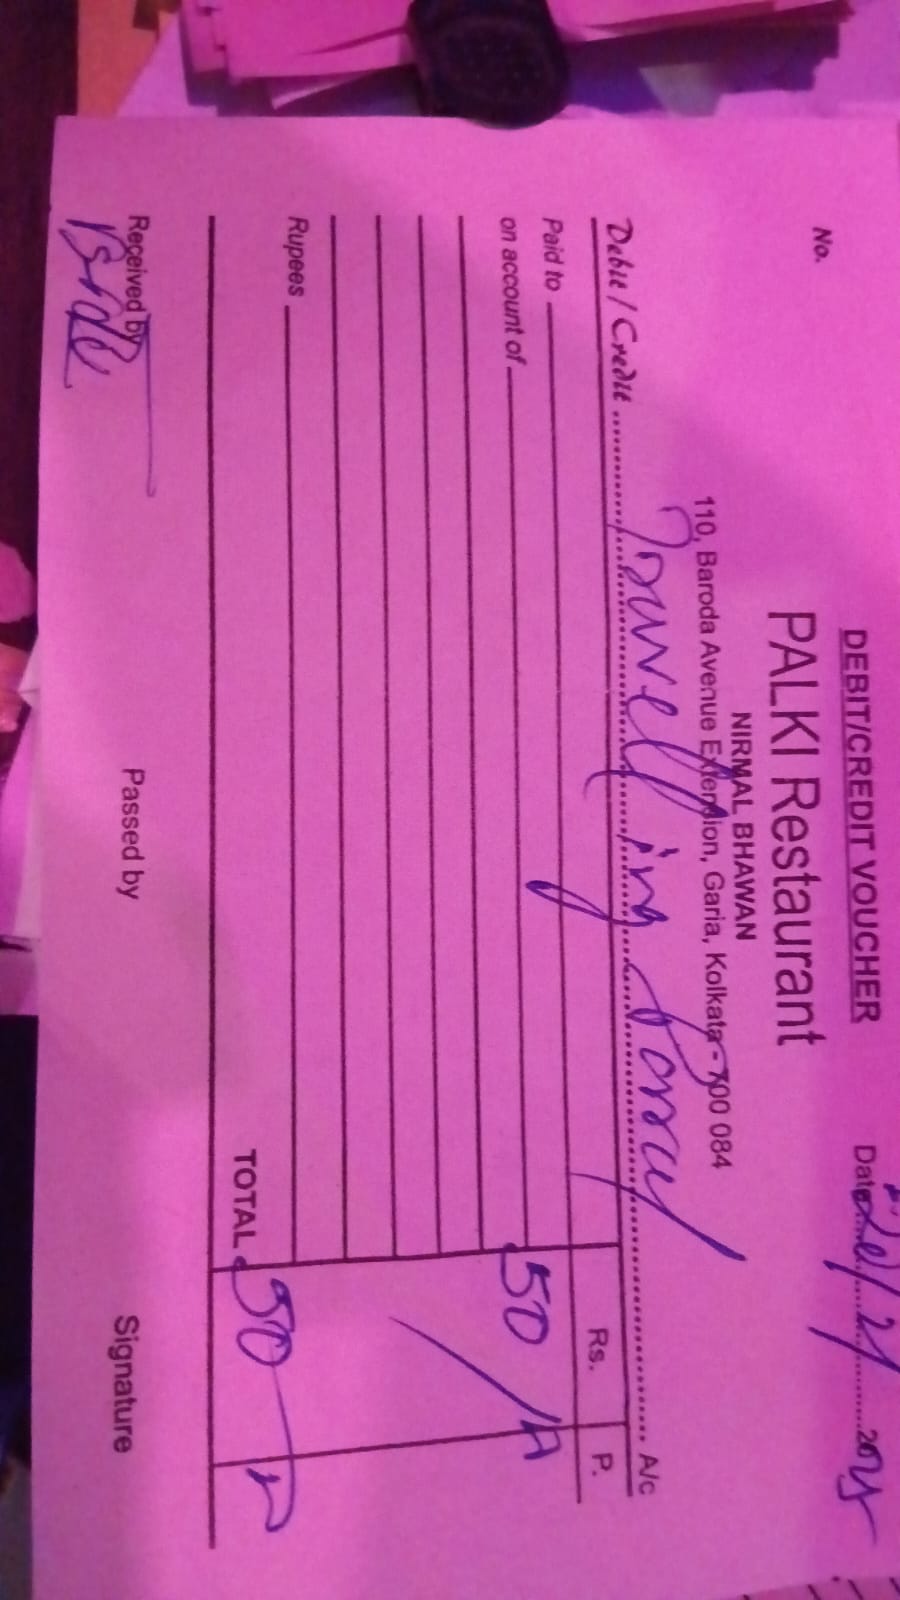 DEBIT/CREDIT VOUCHER
PALKI Restaurant
NIRMAL BHAWAN
110, Baroda Avenue Extension, Garia, Kolkata - 700 084
No.
Date
Debit / Credit A/c
Rs. P.
Paid to
on account of 50
Rupees
TOTAL 50
Received by Passed by Signature